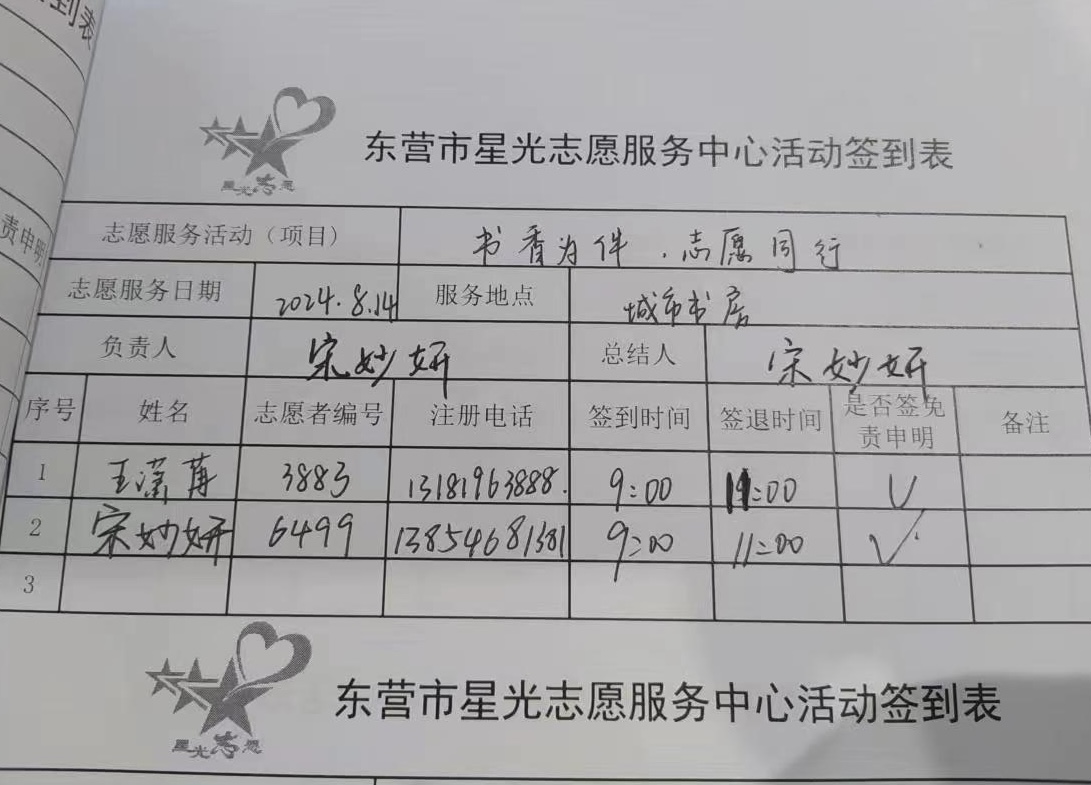 到表
东营市星光志愿服务中心活动签到表
星光志愿
责申明
志愿服务活动（项目） 书香为伴.志愿同行
志愿服务日期 2024.8.14 服务地点 城市书房
负责人 宋妙妍 总结人 宋妙妍
序号 姓名 志愿者编号 注册电话 签到时间 签退时间 是否签免责申明 备注
1 王潇苒 3883 13181963888. 9:00 11:00 √
2 宋妙妍 6499 13854681381 9:00 11:00 √
3
东营市星光志愿服务中心活动签到表
星光志愿